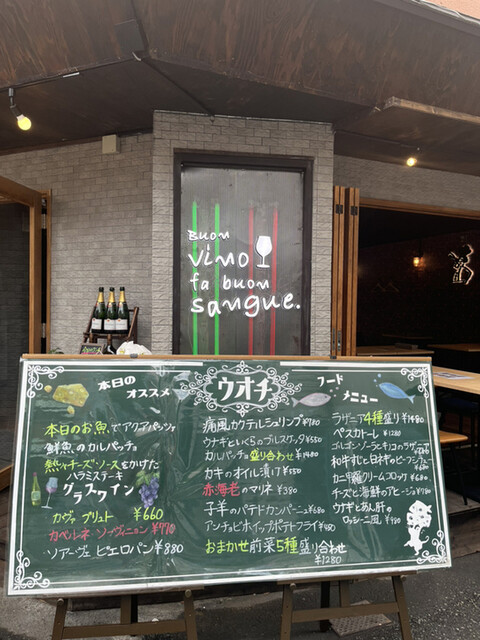 Buon
vino
fa buon
sangue.
本日の
オススメ
ウオチ
フード
メニュー
本日のお魚でアクアパッツァ
鮮魚のカルパッチョ
熱々チーズソースをかけた
ハラミステーキ
グラスワイン
カヴァ ブリュト ¥660
カベルネ ソーヴィニョン ¥770
ソアーヴェ ピエロパン ¥880
痛風カクテルシュリンプ ¥780
ウナギといくらのブルスケッタ ¥550
カルパッチョ盛り合わせ ¥1480
カキのオイル漬け ¥550
赤海老のマリネ ¥380
子羊のパテドカンパーニュ ¥680
アンチョビホイップポテトフライ ¥480
おまかせ前菜5種盛り合わせ
¥1280
ラザニア4種盛り ¥1480
ペスカトーレ ¥1280
ゴルゴンゾーラとキノコのラザニア
和牛すじと白ネギの
カニ甲羅クリームコロッケ ¥680
チーズと海鮮のアヒージョ ¥980
ウサギとあん肝の
ロッシーニ風 ¥980